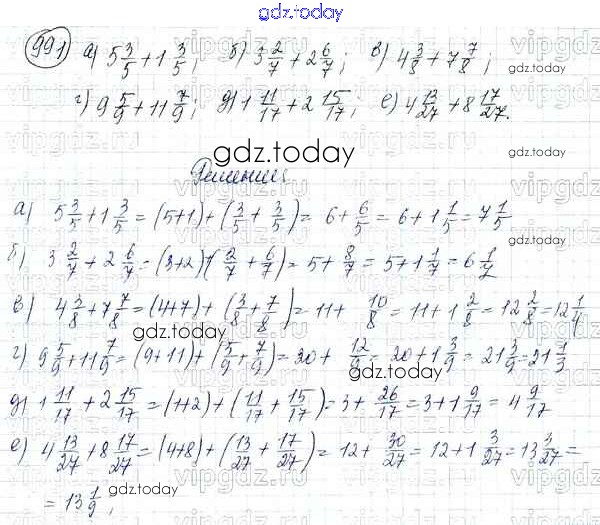 gdz.today
991 а) 5 3/5 + 1 3/5; б) 3 2/7 + 2 6/7; в) 4 3/8 + 7 7/8;
gdz.today gdz.today
г) 9 5/9 + 11 7/9; д) 1 11/17 + 2 15/17; е) 4 13/27 + 8 17/27.
gdz.today
Решение
а) 5 3/5 + 1 3/5 = (5+1) + (3/5 + 3/5) = 6 + 6/5 = 6 + 1 1/5 = 7 1/5
gdz.today
б) 3 2/7 + 2 6/7 = (3+2)+(2/7 + 6/7) = 5 + 8/7 = 5 + 1 1/7 = 6 1/7
в) 4 3/8 + 7 7/8 = (4+7) + (3/8 + 7/8) = 11 + 10/8 = 11 + 1 2/8 = 12 2/8 = 12 1/4
gdz.today
г) 9 5/9 + 11 7/9 = (9+11) + (5/9 + 7/9) = 20 + 12/9 = 20 + 1 3/9 = 21 3/9 = 21 1/3
gdz.today
д) 1 11/17 + 2 15/17 = (1+2) + (11/17 + 15/17) = 3 + 26/17 = 3 + 1 9/17 = 4 9/17
е) 4 13/27 + 8 17/27 = (4+8) + (13/27 + 17/27) = 12 + 30/27 = 12 + 1 3/27 = 13 3/27 =
= 13 1/9;
gdz.today gdz.today